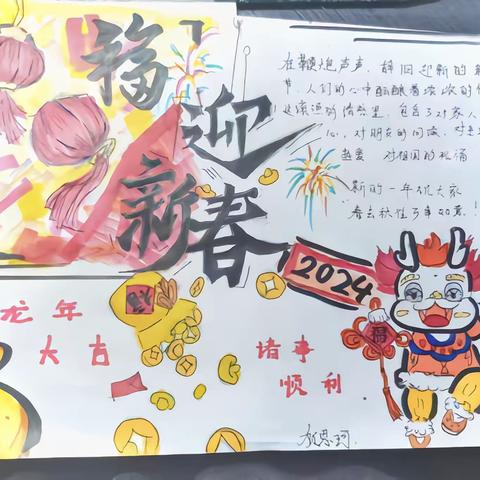 福
迎
新春
在鞭炮声声，辞旧迎新的
节，人们的心中酝酿着浓浓的
这浓浓情意里，包含了对家人
心，对朋友的问候，对
热爱，对祖国的祝福
新的一年祝大家
春去秋往万事如意！
2024
福
龙年
大吉
诸事
顺利